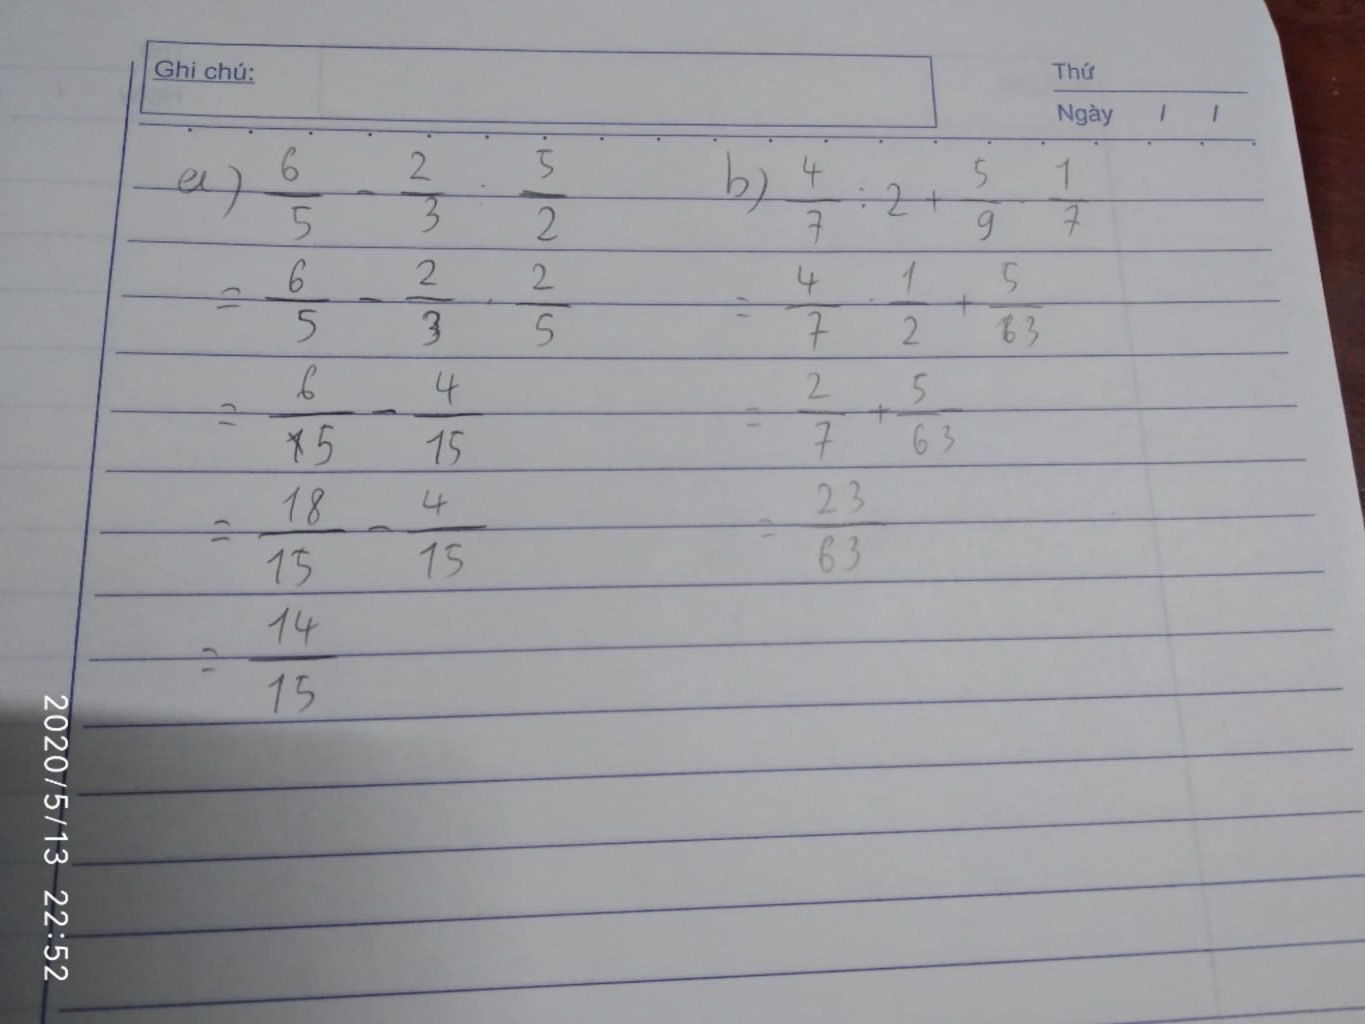 Ghi chú:
Thứ
Ngày / /
a) 6/5 - 2/3 : 5/2
= 6/5 - 2/3 . 2/5
= 6/5 - 4/15
= 18/15 - 4/15
= 14/15
b) 4/7 : 2 + 5/9 . 1/7
= 4/7 . 1/2 + 5/63
= 2/7 + 5/63
= 23/63
2020/5/13 22:52